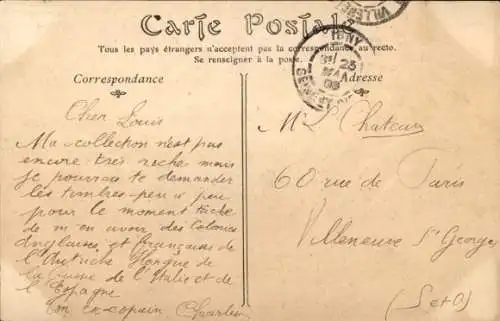 Carte Postale
Tous les pays étrangers n'acceptent pas la correspondance au recto.
Se renseigner à la poste.
Correspondance
Adresse
Cher Louis
Ma collection n'est pas
encore très riche mais
je pourrais te demander
les timbres peu à peu
pour le moment tâche
de m'en avoir des Colonies
Anglaises et françaises de
l'Autriche Hongrie de
la Suisse de l'Italie et de
l'Espagne
ton ex-copain Charles
Mr L. Chateau
60 rue de Paris
Villeneuve St Georges
(S et O)
IGNY
25
08
VILLENE